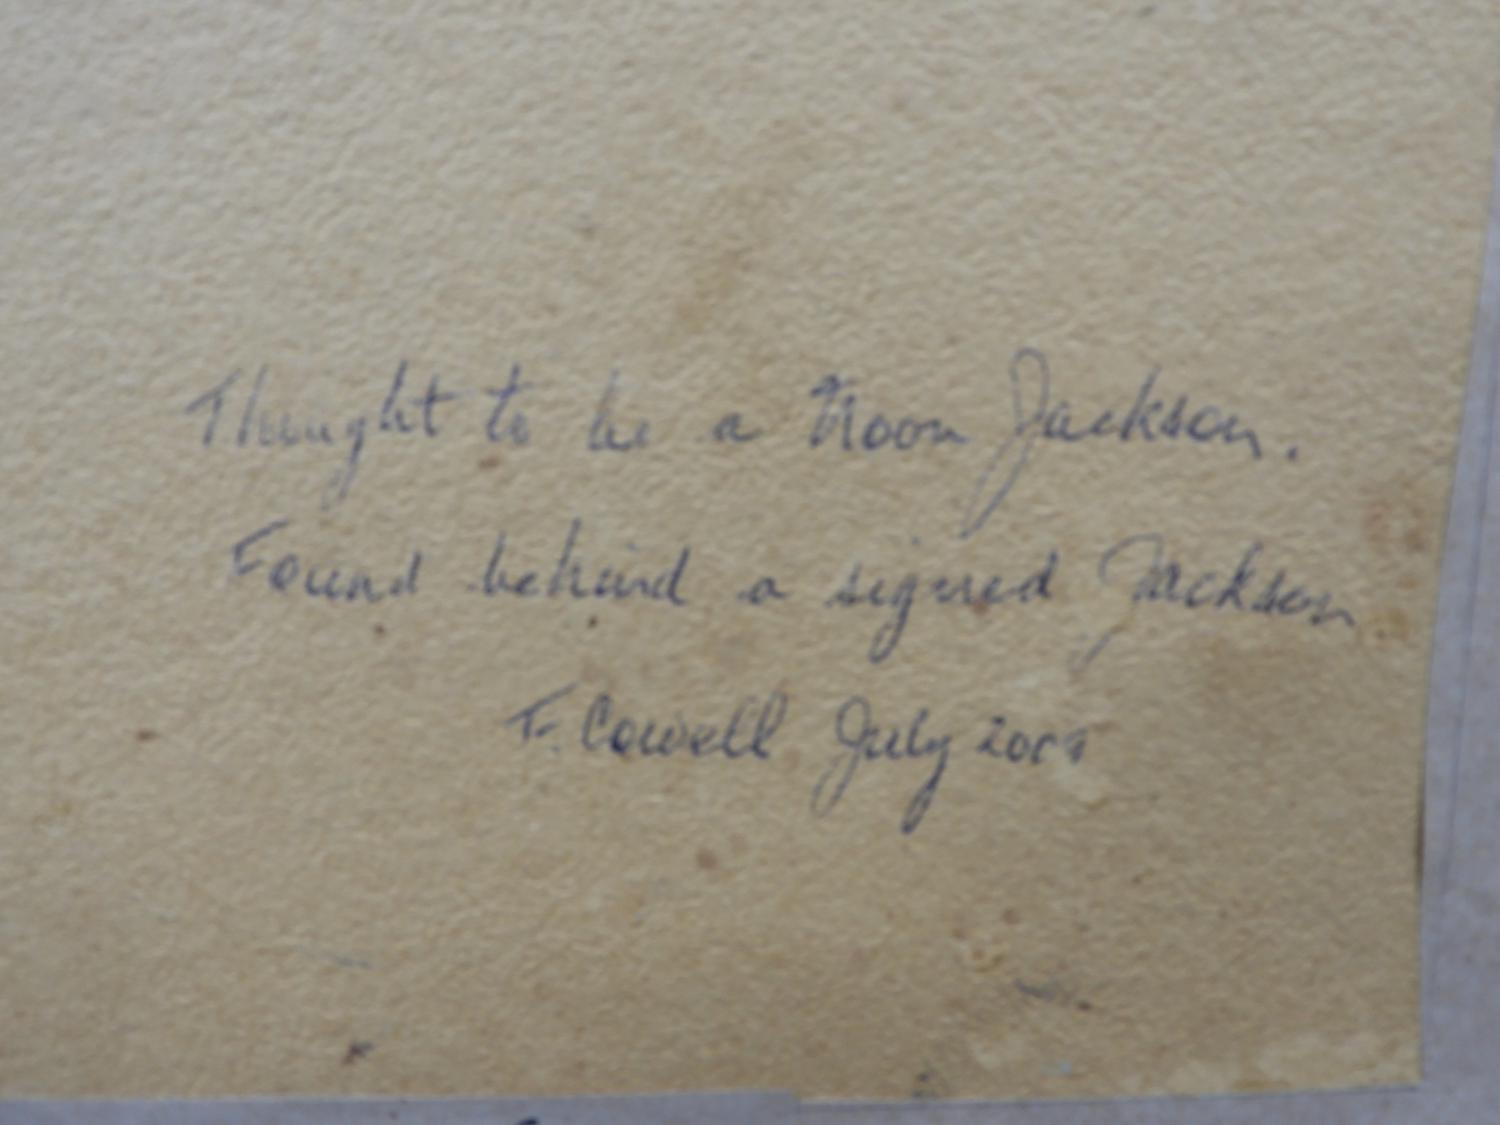 Thought to be a Noon Jackson.
Found behind a signed Jackson
F. Cowell July 2009